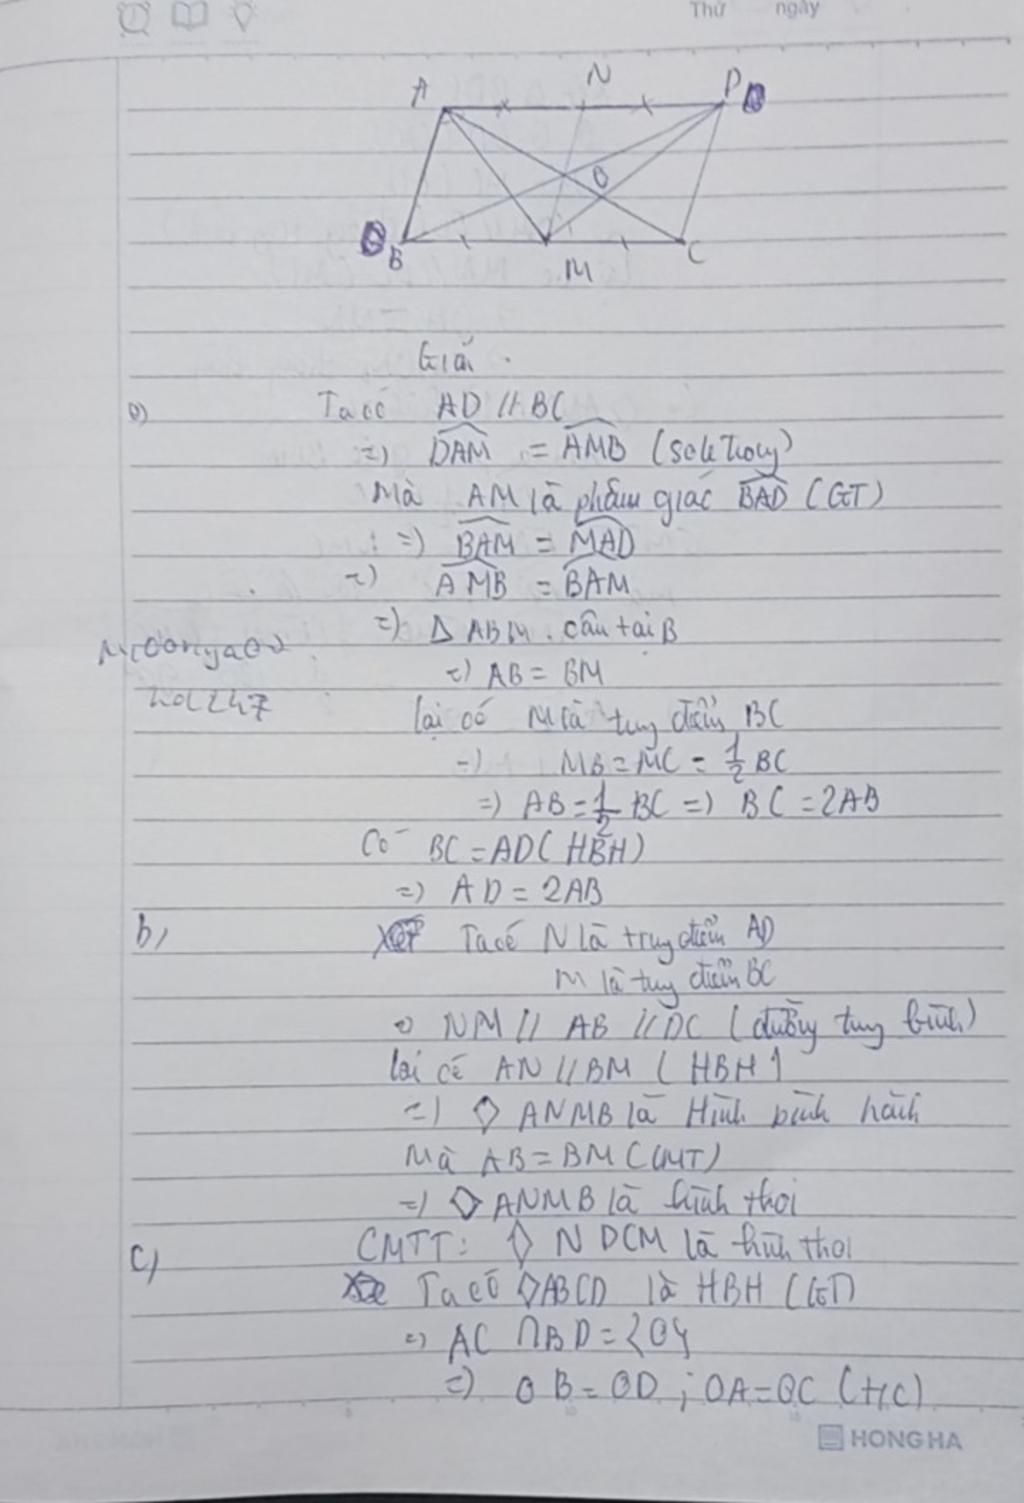 Thứ ngày
A N D
O
B M C
Giải.
a) Ta có AD // BC
=> DAM = AMB (sole trong)
Mà AM là phâm giác BAD (GT)
=> BAM = MAD
=> AMB = BAM
=> Δ ABM. cân tại B
=> AB = BM
lại có M là tug điểm BC
=> MB = MC = 1/2 BC
=> AB = 1/2 BC => BC = 2AB
Có BC = AD (HBH)
=> AD = 2AB
b, Ta có N là trug điểm AD
M là tug điểm BC
=> NM // AB // DC (đường tug bình)
lại có AN // BM (HBH)
=> ◇ ANMB là Hình bình hành
Mà AB = BM (CMT)
=> ◇ ANMB là hình thoi
CMTT: ◇ NDCM là hình thoi
c) Ta có ◇ABCD là HBH (GT)
=> AC ∩ BD = {O}
=> OB = OD ; OA = OC (t/c)
HONG HA